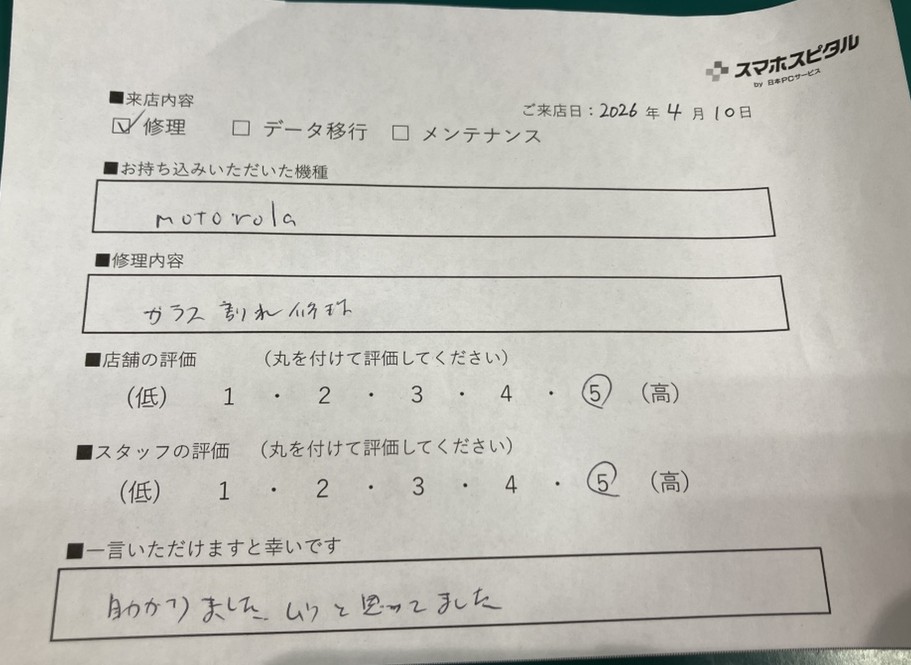 スマホスピタル
by 日本PCサービス
■来店内容
ご来店日：2026年4月10日
☑修理 □ データ移行 □ メンテナンス
■お持ち込みいただいた機種
motorola
■修理内容
ガラス割れ修理
■店舗の評価 （丸を付けて評価してください）
（低） 1 ・ 2 ・ 3 ・ 4 ・ ⑤ （高）
■スタッフの評価 （丸を付けて評価してください）
（低） 1 ・ 2 ・ 3 ・ 4 ・ ⑤ （高）
■一言いただけますと幸いです
助かりました。ムリと思ってました